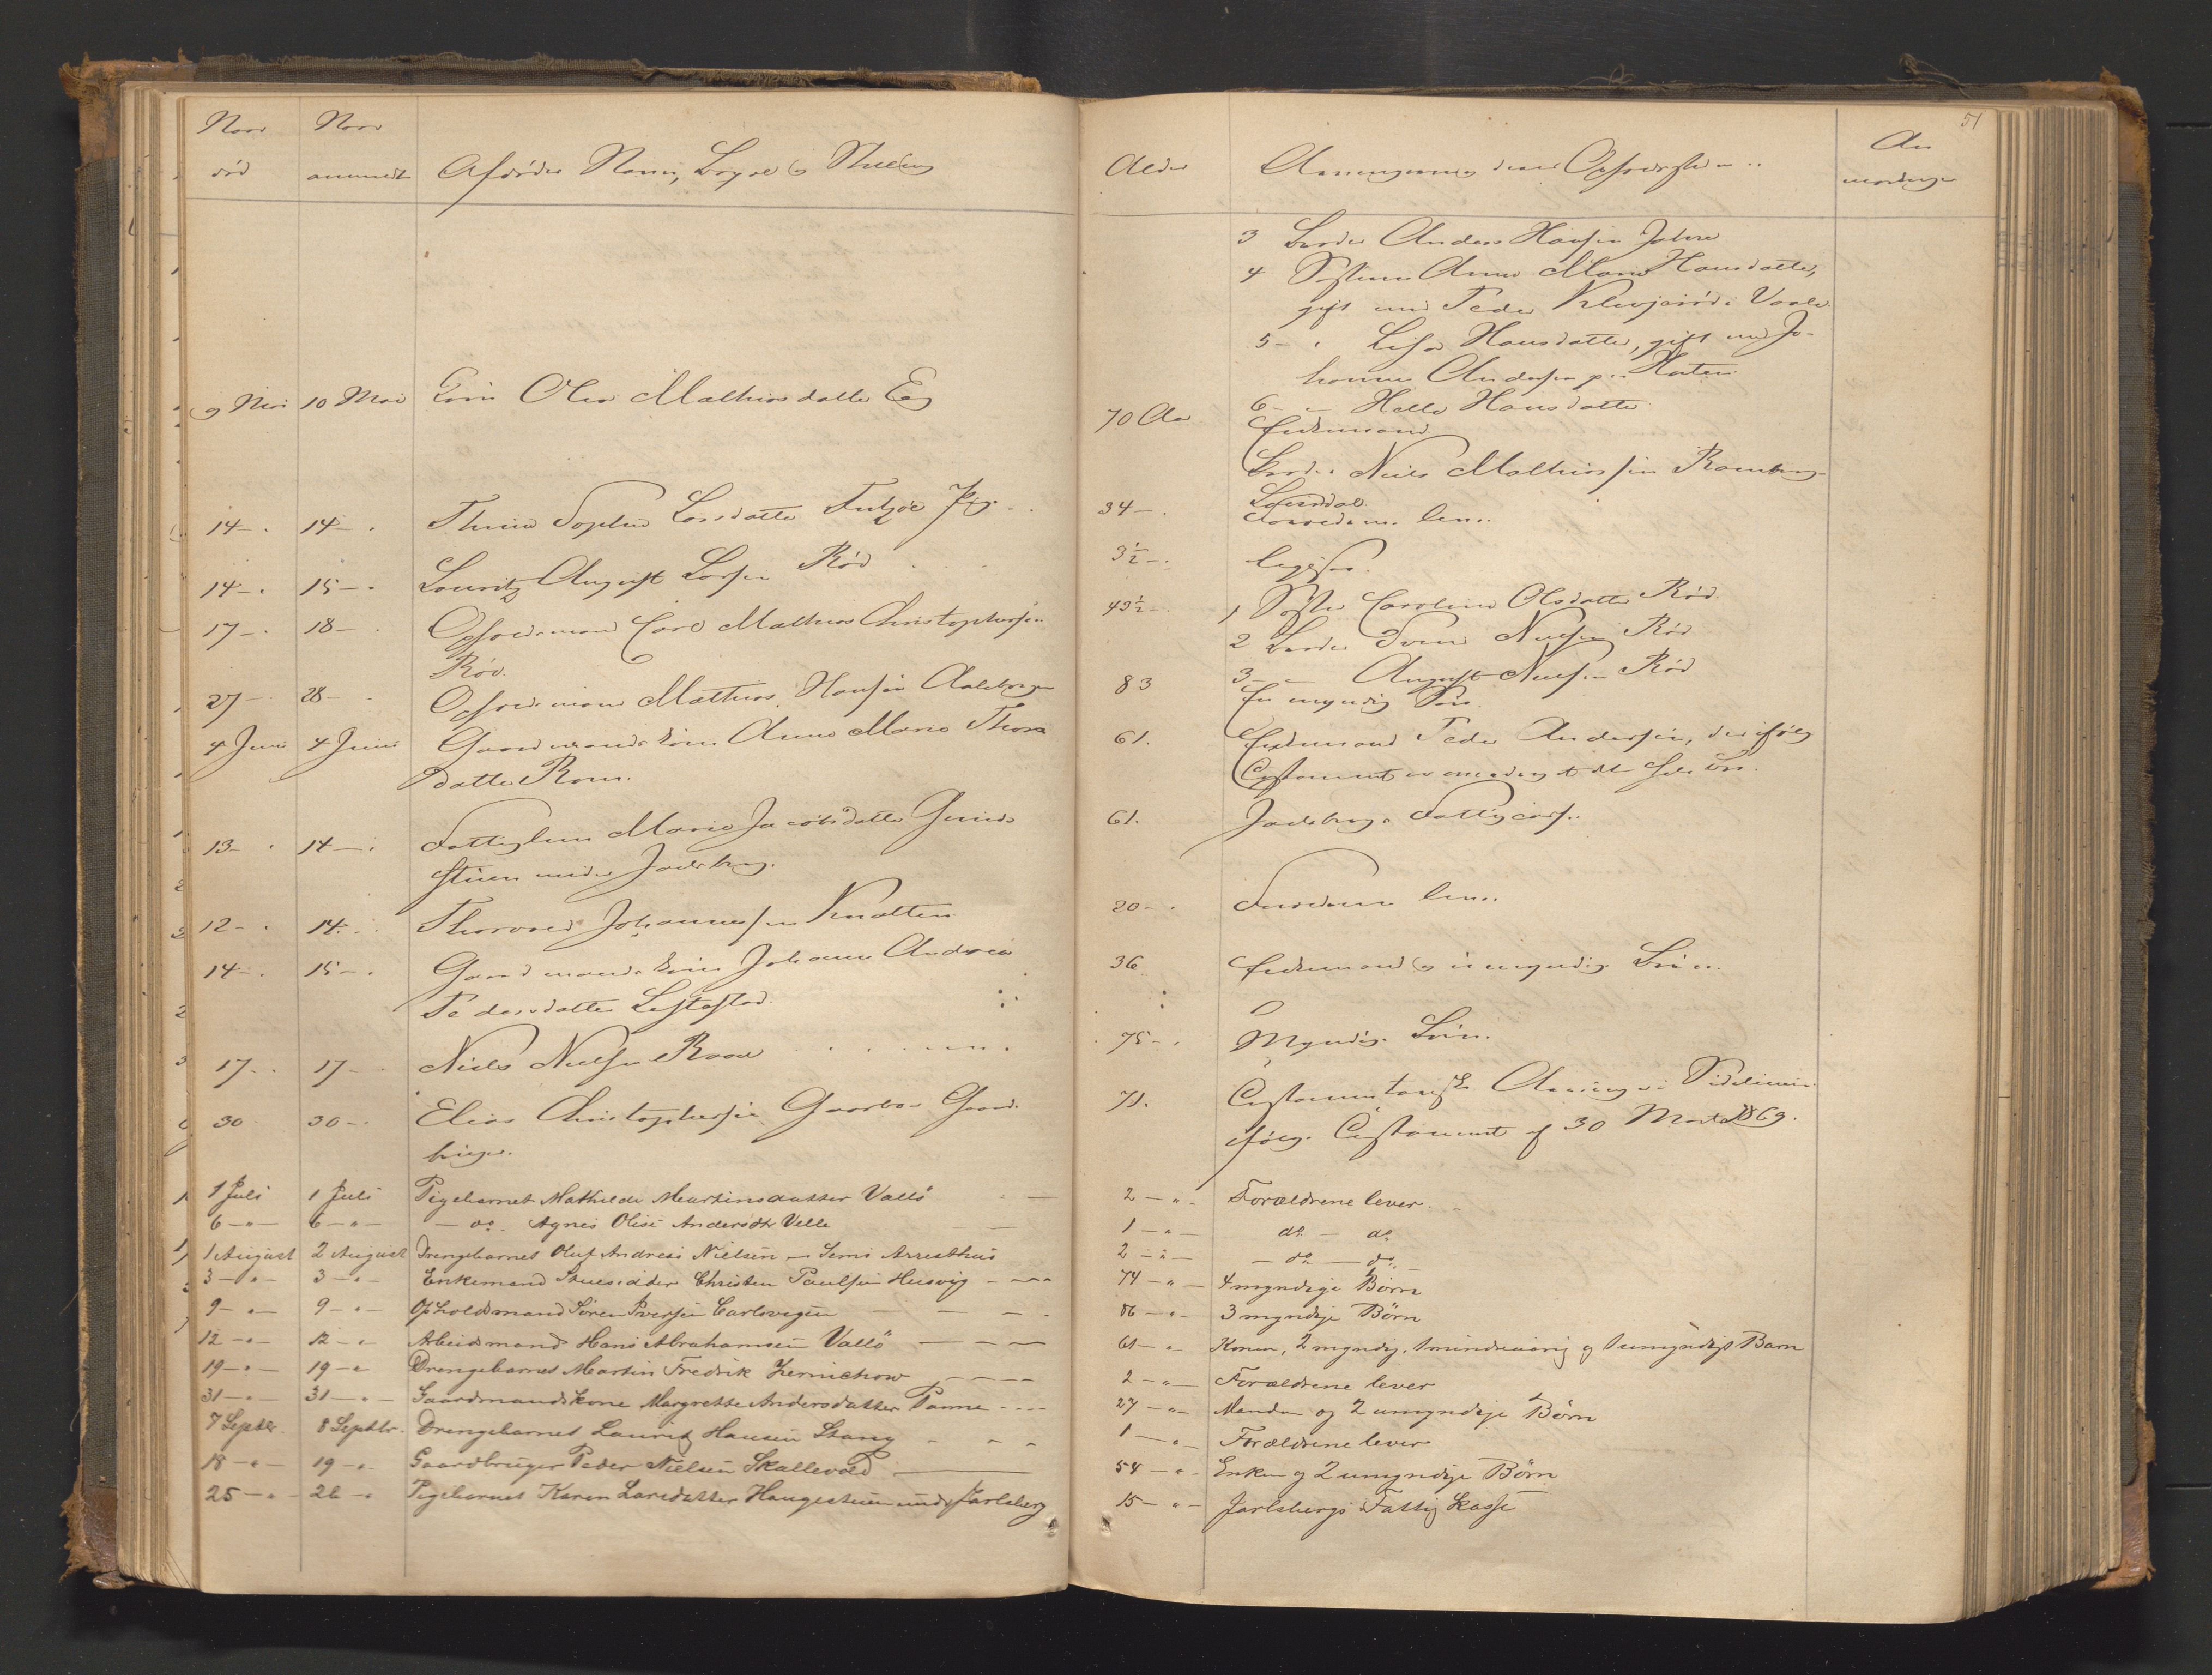 51
Naar død
Naar anmeldt
Afdødes Navn, Bopæl og Stilling
Alder
Arvingerne deres Opholdssted
Anmerkninger
3 Broder Anders Hansen Jahre
4 Søsteren Anne Marie Hansdatter,
gift med Peder i Vaale
5 - " Lisa Hansdatter, gift med Jo-
hannes Andersen paa Horten
6 - " Helle Hansdatter
9 Mai 10 Mai Olea Mathiasdatter Eeg 70 Aar Enkemand
Broder Niels Mathiassen Ramberg
14 - 14 - Sophie Larsdatter Pige 34 - Forældrene lever
14 - 15 - Lauritz August Larsen Rød 3½ - ligesaa
17 - 18 - Opholdsmand Carl Mathias Christophersen
Rød 43½ - 1 Søster Caroline Olsdatter Rød
2 Broder Nielsen Rød
3 - " August Nielsen Rød
27 - 28 - Opholdsmand Mathias Hansen 83 En myndig Søn
4 Juni 4 Juni Gaardmandskone Anne Marie Thors
datter Rom. 61. Enkemand Peder Andersen, der ifølge
Testament
13 - 14 - Fattiglem Marie Jacobsdatter
stuen under Jarlsberg. 61. Jarlsbergs Fattigcasse
12 - 14 - Thorvald Johannessen Knatten 20 - Forældrene lever
14 - 15 - Gaardmandskone Johanne Andrea
Pedersdatter 36 Enkemand og umyndige Børn
17 - 17 - Niels Nielsen 75 - Myndige Børn
30 30 - Elias Christophersen Gaarbo Gaard-
bruger. 71. Testamentariske Arvinger
ifølge Testament af 30 Marts 1869.
1 Juli 1 Juli Pigebarnet Mathilde Martinsdatter Vallö 2 - " - Forældrene lever
6 - " - 6 - " - - do. Agnes Olise Andersdtr Velle 1 - " - do - do
1 August 2 August Drengebarnet Oluf Andreas Nielsen - Sems Arresthus 2 - " - do - do
3 - " - 3 - " - Enkemand Huusidder Christen Paulsen Husvig 74 - " - 4 myndige Børn
9 - " - 9 - " - Opholdsmand Søren Iversen Carlsvigen 86 - " - 3 myndige Börn
12 - " - 12 - " - Arbeidsmand Hans Abrahamsen Vallö 61 - " - Konen, 2 myndg, 1 mindreaarig og 1 umyndigt Barn
19 - " - 19 - " Drengebarnet Martin Fredrik Zernichow 2 - " - Forældrene lever
31 - " - 31 - " - Gaardmandskone Margrethe Andersdatter Tamne 27 - " - Manden og 2 umyndige Börn
7 Septbr. 8 Septbr. Drengebarnet Lauritz Hansen Stang 1 - " - Forældrene lever
18 - " - 19 - " - Gaardbruger Peder Nielsen Skallevold 54 - " - Enken og 2 umyndige Börn
25 - " - 26 - " Pigebarnet Karen Larsdatter Haugestuen under Jarlsberg 15 - " - Jarlsbergs Fattig kasse